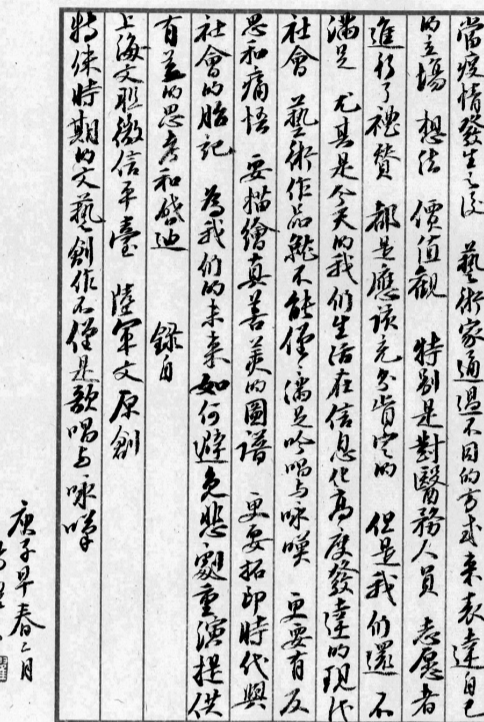 當疫情發生之後 藝術家通過不同的方式來表達自己
的立場 想法 價值觀 特別是對醫務人員 志愿者
進行了禮贊 都是應該充分肯定的 但是我们還不
滿足 尤其是今天的我们生活在信息化高度發達的現代
社會 藝術作品就不能僅〻滿足吟唱与咏嘆 更要有反
思和痛悟 要描繪真善美的圖譜 更要拓印時代與
社會的胎記 為我们的未來如何避免悲劇重演提供
有益的思考和啟迪 錄自
上海文联微信平臺 陸軍文原創
特殊時期的文藝創作不僅是歌唱与咏嘆
庚子早春二月